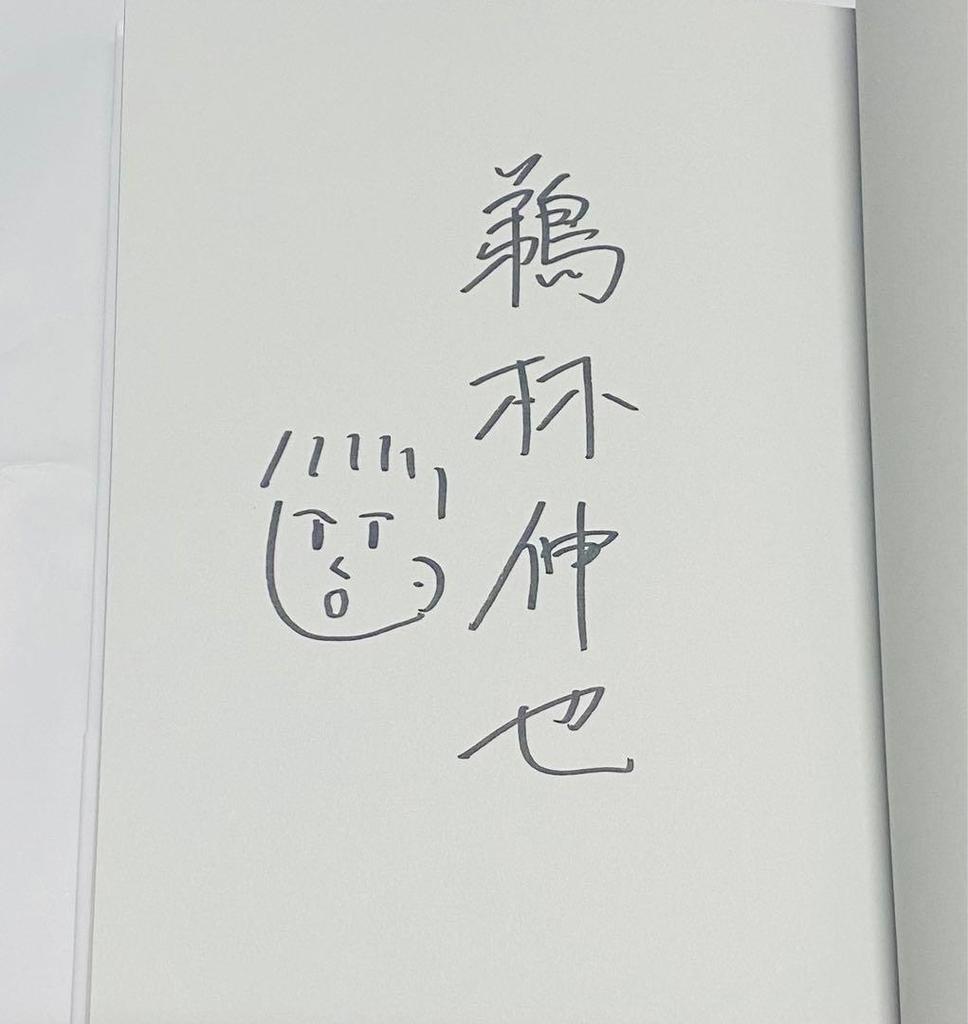 鵜林伸也